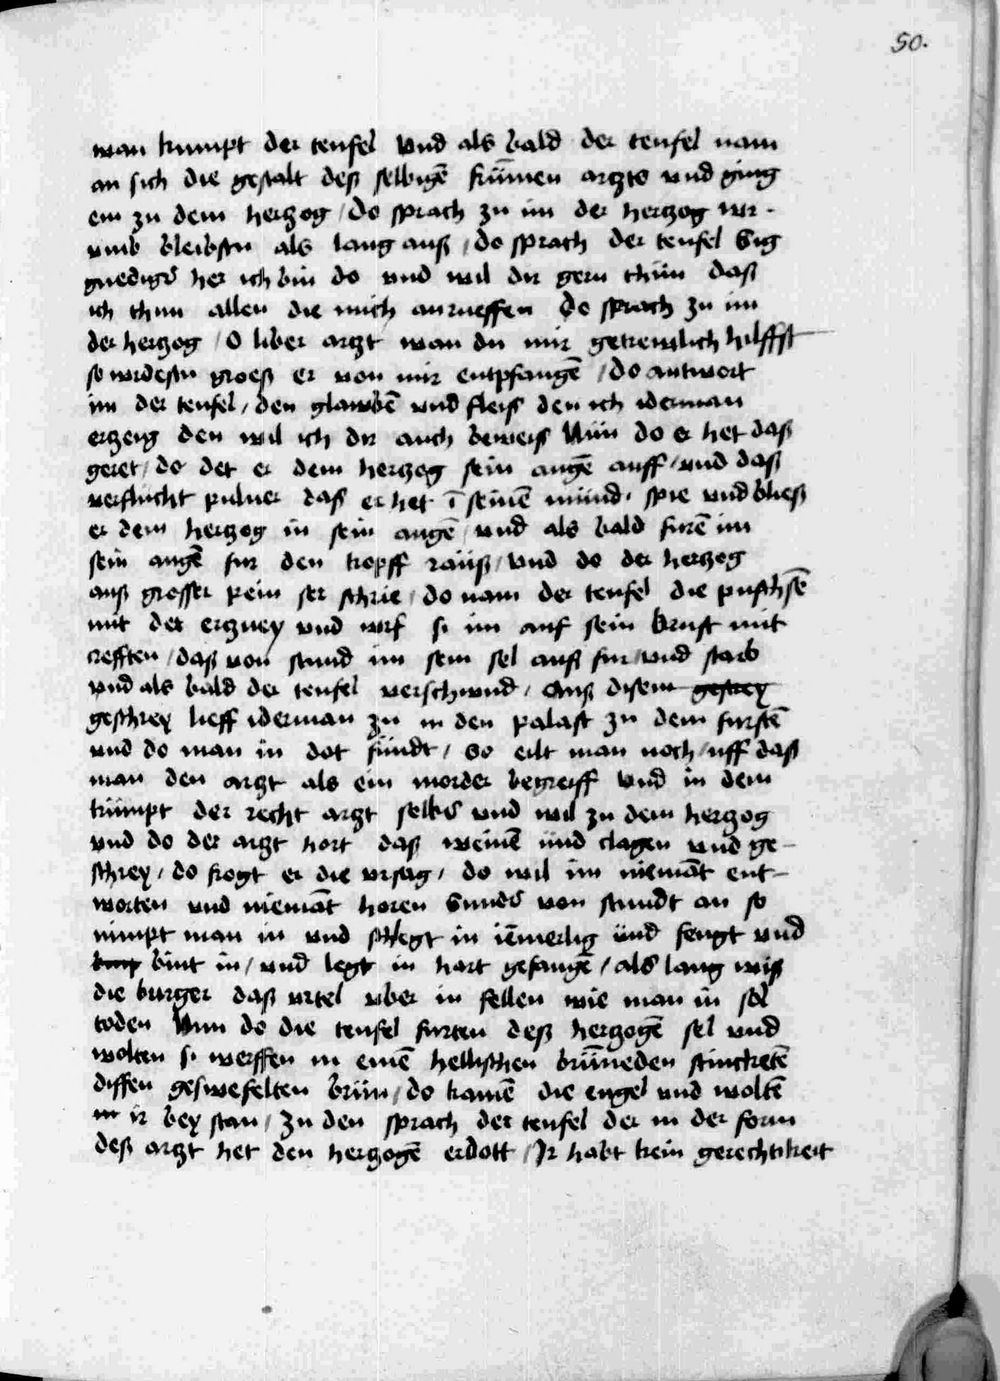 50.
wan kumpt der teufel vnd als bald der teufel nam
an sich die gestalt deß selbigē kūmen artzts vnd ging
ein zu dem hertzog / do sprach zu im der hertzog wr-
vmb bleibstu als lang auß / do sprach der teufel
gnediger her ich bin do vnd wil dir gern thün daß
ich thun allen die mich anrueffen do sprach zu im
der hertzog / O liber artzt wan du mir getrewlich hilffst
so wirdestu groeß er von mir entpfangē / do antwort
im der teufel / den glawbē vnd fleiß den ich iderman
ertzeig den wil ich dir auch beweiß Nün do er het daß
geret / do det er dem hertzog sein augē auff / vnd daß
verflucht puluer daß er het ī seinē münd · spie vnd bließ
er dem hertzog in sein augē / vnd als bald furē im
sein augē fur den kopff rauß / vnd do der hertzog
auß grosser pein ser schrie / do nam der teufel die puschsē
mit der ertzney vnd wrf si im auf sein brust mit
crefften / daß von stund im sein sel auß fur / vnd starb
vnd als bald der teufel verschwnd / Auß disem gestrey
geschrey lieff iderman zu in den palast zu dem furstē
vnd do man in dot fündt / so eilt man noch / uff daß
man den artzt als ein morder begreiff vnd in dem
kümpt der recht artzt selbs vnd wil zu dem hertzog
vnd do der artzt hort daß weinē ünd clagen vnd ge-
schrey / do frogt er die vrsag / do wil im niemāt ent-
worten vnd niemāt horen Sunder von stundt an so
nimpt man in vnd schlegt in iēmerlig ünd fengt vnd
bint in / vnd legt in hart gefangē / als lang wiß
die burger daß vrtel vber in fellen wie man in sol
toden Nun do die teufel furten deß hertzogē sel vnd
wolten si werffen in einē hellischen brūneden stincketē
diffen geswefelten brün / do kamē die engel vnd woltē
ir bey stan / Zu den sprach der teufel der in der form
deß artzt het den hertzogē erdott / Ir habt kein gerechtikeit